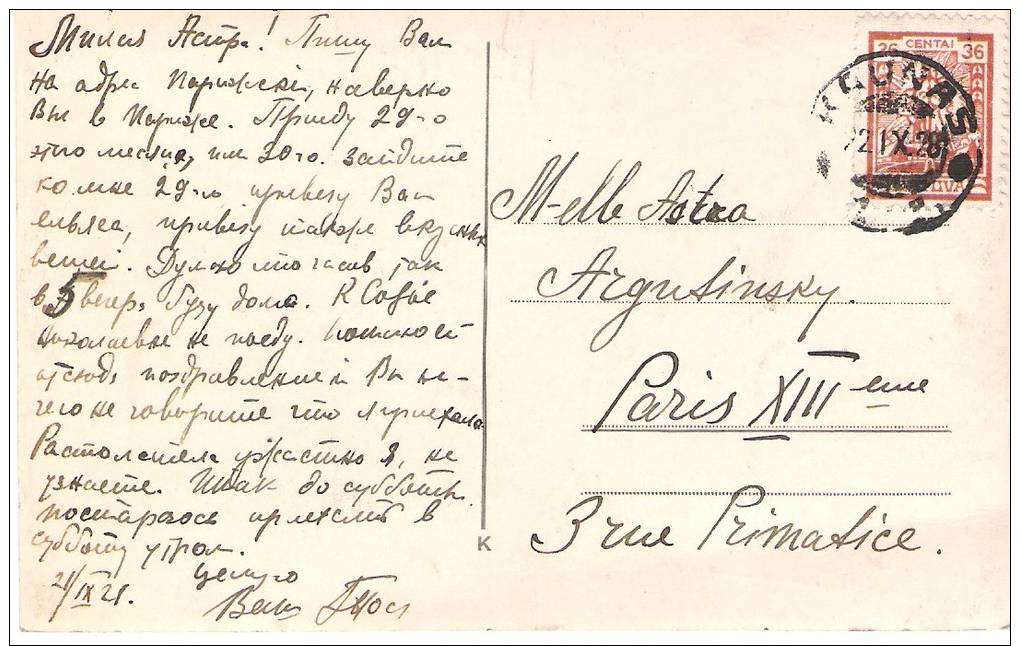 Милая Астра! Пишу Вам
на адрес Парижскій, наверно
Вы в Париже. Приеду 29-о
этого месяца, или 30-о. Зайдите
ко мне 29-о привезу Вам
привезу также вкусных
вещей. Думаю что часов так
в 5 вечера буду дома. К Софіе
Николаевне не поеду. Пошлю ей
отсюда поздравление и Вы ни-
чего не говорите что я приехала
Растолстела ужастно я, не
узнаете. Итак до субботы.
постараюсь приехать в
субботу утром.
Целую
Ваша
21/IX 28.
K
36 CENTAI 36
KAUNAS
22.IX.28
M-elle Astra
Argutinsky.
Paris XIII eme
3 rue Primatice.